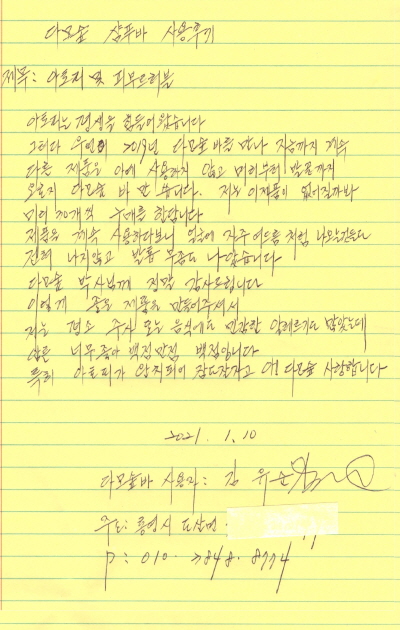 다모숲 샴푸바 사용후기
제목: 아토피 및 피부트러블
아토피는 평생을 힘들어 왔습니다
그러다 우연히 2019년 다모숲 바를 만나 지금까지 계속
다른 제품을 아예 사용하지 않고 머리부터 발끝까지
오로지 다모숲 바 만 씁니다. 저는 이제품이 없어질까봐
미리 30개씩 구매를 합니다
제품을 계속 사용하다보니 얼굴에 자주 여드름 처럼 나오는것도
전혀 나지않고 발톱 무좀도 나았습니다
다모숲 박사님께 정말 감사드립니다
이렇게 좋은 제품을 만들어주셔서
저는 평소 주사 모든 음식에도 민감한 알레르기도 많았는데
삶은 너무좋아 백점만점 백점입니다
특히 아토피가 완치되어 잠도잘자고 야! 다모숲 사랑합니다
2021. 1. 10
다모숲바 사용자: 김유순
주소: 통영시 도산면
P: 010. 2848. 8774